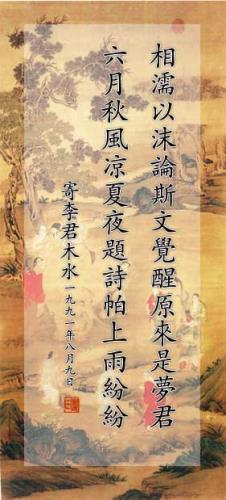 相濡以沫論斯文覺醒原來是夢君
六月秋風凉夏夜題詩帕上雨紛紛
寄李君木水 一九九一年八月九日